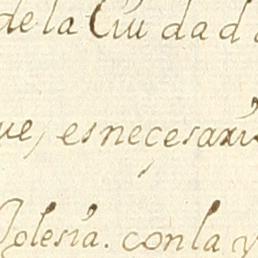 de la Ciudad
ue, es neçesari
Iglesia. con la y